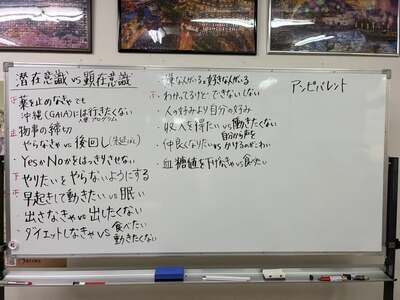 潜在意識 vs 顕在意識
薬を止めなきゃ でも
沖縄(GAIA)には行きたくない
入寮プログラム
物事の締切
やらなきゃ vs 後回し(先延ばし)
Yes か No かをはっきりさせない
やりたいをやらないようにする
早起きして動きたい vs 眠い
出さなきゃ vs 出したくない
ダイエットしなきゃ vs 食べたい
動きたくない
嫌な人がいる 好きな人がいる
わかってるけど できない しない
人の好みより自分の好み
収入を得たい vs 働きたくない
仲良くなりたい vs 自分から声をかけるのがこわい
血糖値を下げなきゃ vs 食べたい
アンビバレント